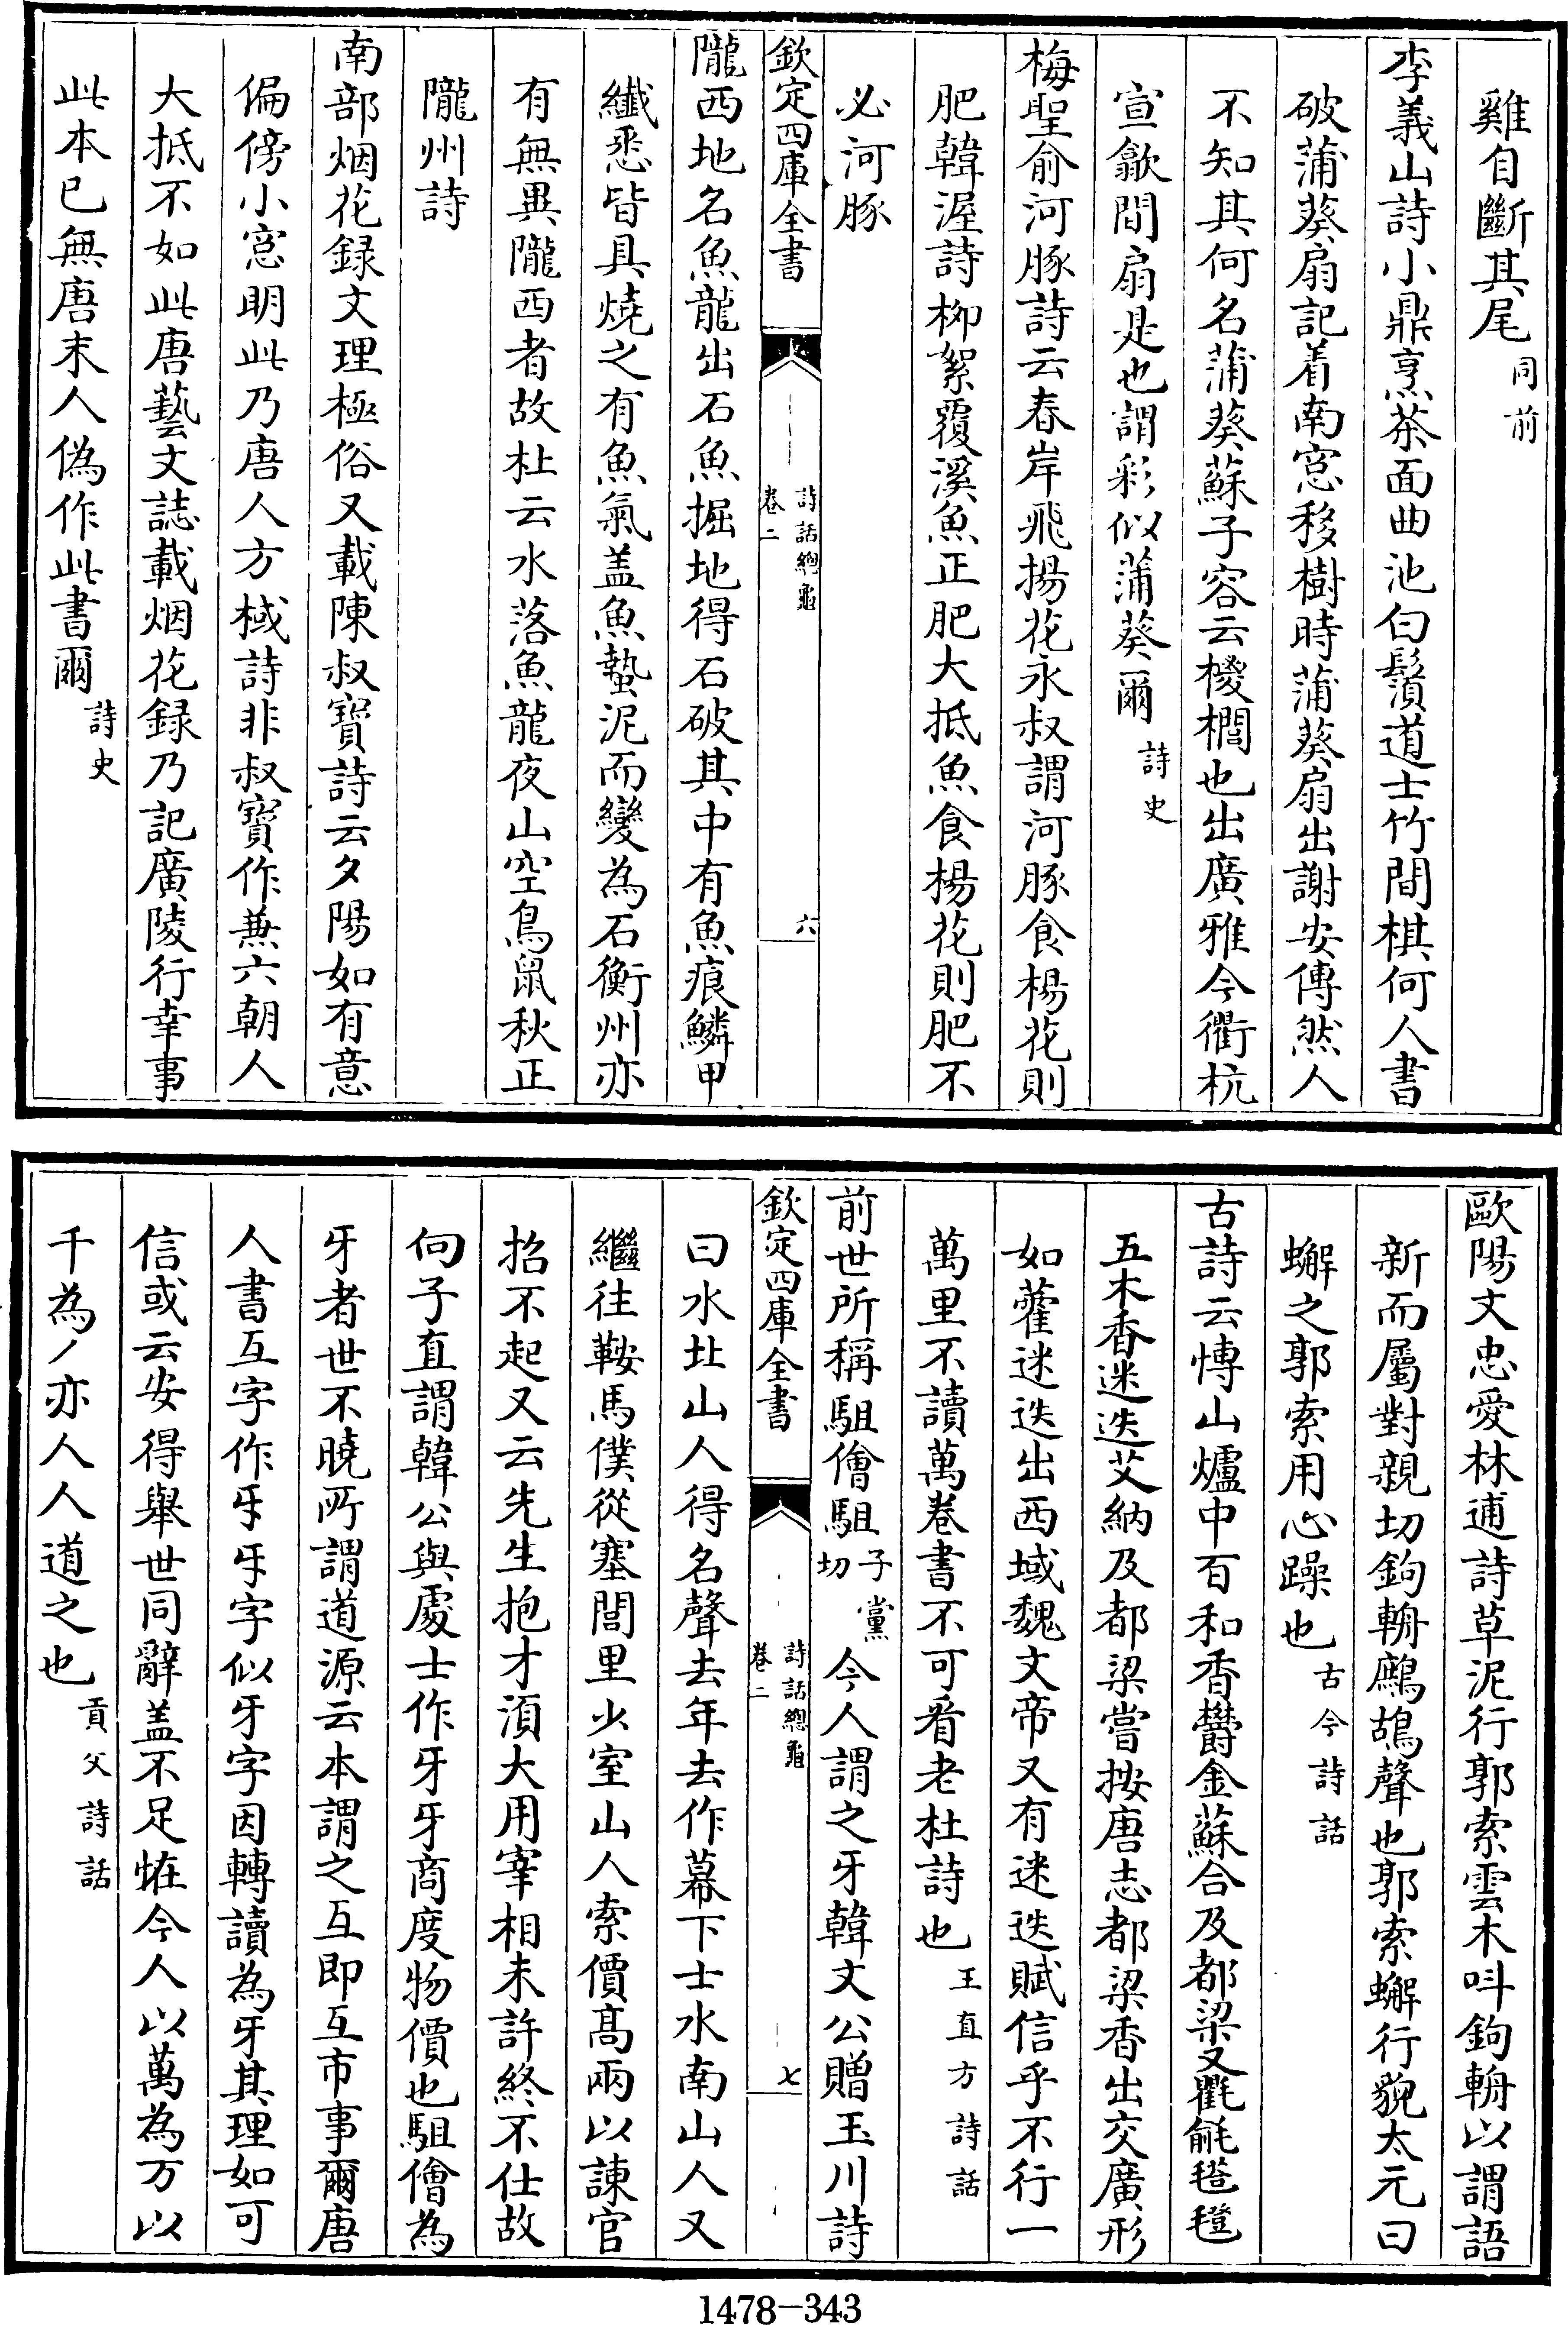 雞自斷其尾同前
李義山詩小鼎烹茶面曲池白鬚道士竹間棋何人書
破蒲葵扇記着南窓移樹時蒲葵扇出謝安傳然人
不知其何名蒲葵蘇子容云椶櫚也出廣雅今衢杭
宣歙間扇是也謂彩似蒲葵爾詩史
梅聖俞河豚詩云春岸飛揚花永叔謂河豚食楊花則
肥韓渥詩柳絮覆溪魚正肥大抵魚食楊花則肥不
必河豚
欽定四庫全書
詩話總龜
卷二
六
隴西地名魚龍出石魚掘地得石破其中有魚痕鱗甲
纖悉皆具燒之有魚氣盖魚蟄泥而變為石衡州亦
有無異隴西者故杜云水落魚龍夜山空鳥鼠秋正
隴州詩
南部烟花録文理極俗又載陳叔寶詩云夕陽如有意
偏傍小窓明此乃唐人方棫詩非叔寳作兼六朝人
大抵不如此唐藝文誌載烟花録乃記廣陵行幸事
此本已無唐末人偽作此書爾詩史
歐陽文忠愛林逋詩草泥行郭索雲木呌鉤輈以謂語
新而屬對親切鉤輈鷓鴣聲也郭索蠏行貌太元曰
蠏之郭索用心躁也古今詩話
古詩云慱山爐中百和香欝金蘇合及都梁又氍毹毾㲪
五木香迷迭艾納及都梁嘗按唐志都梁香出交廣形
如藿迷迭出西域魏文帝又有迷迭賦信乎不行一
萬里不讀萬卷書不可看老杜詩也王直方詩話
前世所稱駔儈駔子黨切今人謂之牙韓文公贈玉川詩
欽定四庫全書
詩話總龜
卷二
七
曰水北山人得名聲去年去作幕下士水南山人又
繼往鞍馬僕從塞閭里少室山人索價髙兩以諌官
招不起又云先生抱才須大用宰相未許終不仕故
向子直謂韓公與處士作牙牙商度物價也駔儈為
牙者世不曉所謂道源云本謂之互即互市事爾唐
人書互字作㸦㸦字似牙字因轉讀為牙其理如可
信或云安得舉世同辭盖不足恠今人以萬為万以
千為丿亦人人道之也貢父詩話
1478-343